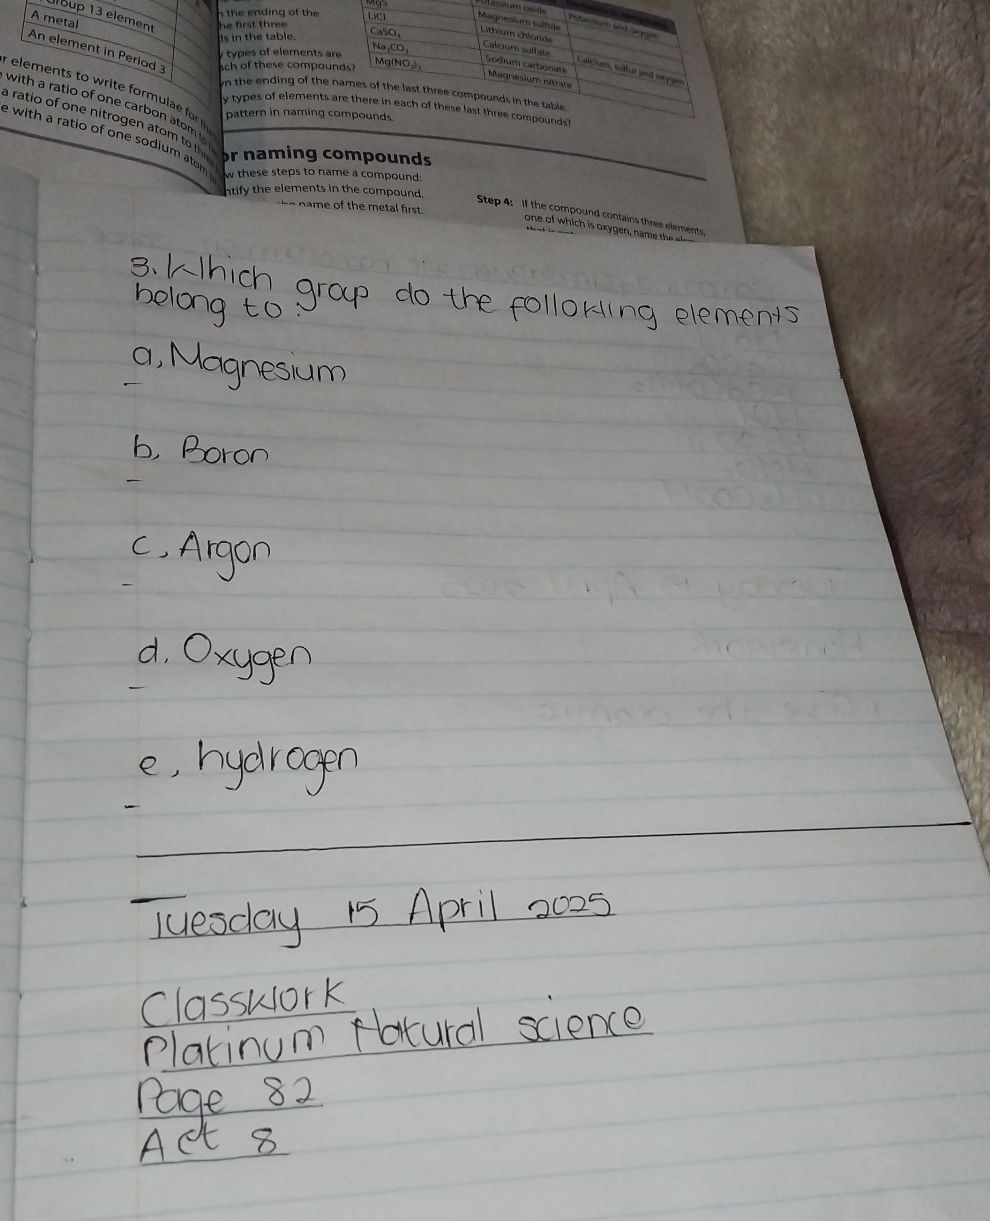 oup 13 element
A metal
An element in Period 3
r elements to write formulae for
with a ratio of one carbon atom to
a ratio of one nitrogen atom to
e with a ratio of one sodium atom
the ending of the
he first three
ds in the table.
types of elements are
ach of these compounds?
n the ending of the names of the last three compounds in the table.
y types of elements are there in each of these last three compounds?
pattern in naming compounds.
MgS
LiCl
CaSO₄
Na₂CO₃
Mg(NO₃)₂
Magnesium sulfide
Lithium chloride
Calcium sulfate
Sodium carbonate
Magnesium nitrate
Potassium and oxygen
Calcium, sulfur and oxygen
or naming compounds
w these steps to name a compound:
ntify the elements in the compound.
name of the metal first.
Step 4: If the compound contains three elements,
one of which is oxygen, name the
3. Which group do the following elements
belong to?
a, Magnesium
b, Boron
c, Argon
d. Oxygen
e, hydrogen
Tuesday 15 April 2025
Classwork
Platinum Natural science
Page 82
Act 8